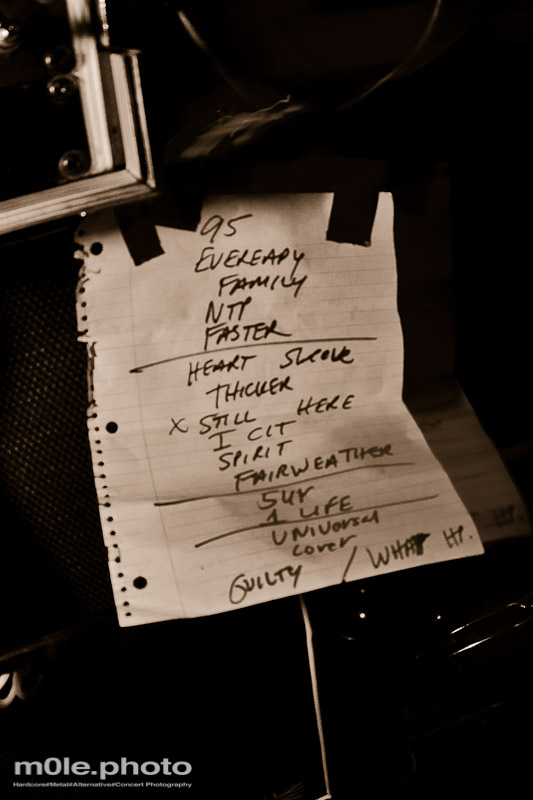 95
EVEREADY
FAMILY
NTP
FASTER
HEART SLEEVE
THICKER
X STILL HERE
I CIT
SPIRIT
FAIRWEATHER
5UR
1 LIFE
UNIVERSAL
COVER
GUILTY / WHAT HP.
m0le.photo
Hardcore#Metal#Alternative#Concert Photography